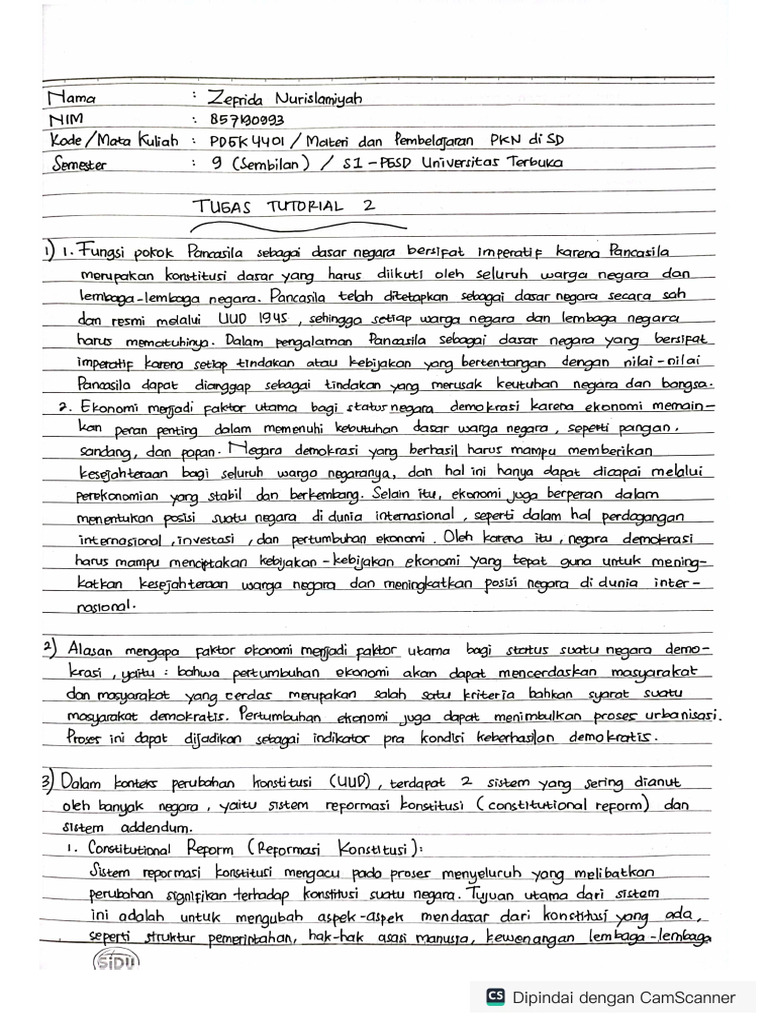 Nama : Zefrida Nurislamiyah
NIM : 857190993
Kode/Mata Kuliah : PDGK4401 / Materi dan Pembelajaran PKN di SD
Semester : 9 (Sembilan) / S1-PGSD Universitas Terbuka
TUGAS TUTORIAL 2
1) 1. Fungsi pokok Pancasila sebagai dasar negara bersifat imperatif karena Pancasila
merupakan konstitusi dasar yang harus diikuti oleh seluruh warga negara dan
lembaga-lembaga negara. Pancasila telah ditetapkan sebagai dasar negara secara sah
dan resmi melalui UUD 1945, sehingga setiap warga negara dan lembaga negara
harus mematuhinya. Dalam pengalaman Pancasila sebagai dasar negara yang bersifat
imperatif karena setiap tindakan atau kebijakan yang bertentangan dengan nilai-nilai
Pancasila dapat dianggap sebagai tindakan yang merusak keutuhan negara dan bangsa.
2. Ekonomi menjadi faktor utama bagi status negara demokrasi karena ekonomi memain-
kan peran penting dalam memenuhi kebutuhan dasar warga negara, seperti pangan,
sandang, dan papan. Negara demokrasi yang berhasil harus mampu memberikan
kesejahteraan bagi seluruh warga negaranya, dan hal ini hanya dapat dicapai melalui
perekonomian yang stabil dan berkembang. Selain itu, ekonomi juga berperan dalam
menentukan posisi suatu negara di dunia internasional, seperti dalam hal perdagangan
internasional, investasi, dan pertumbuhan ekonomi. Oleh karena itu, negara demokrasi
harus mampu menciptakan kebijakan-kebijakan ekonomi yang tepat guna untuk mening-
katkan kesejahteraan warga negara dan meningkatkan posisi negara di dunia inter-
nasional.
2) Alasan mengapa faktor ekonomi menjadi faktor utama bagi status suatu negara demo-
krasi, yaitu : bahwa pertumbuhan ekonomi akan dapat mencerdaskan masyarakat
dan masyarakat yang cerdas merupakan salah satu kriteria bahkan syarat suatu
masyarakat demokratis. Pertumbuhan ekonomi juga dapat menimbulkan proses urbanisasi.
Proses ini dapat dijadikan sebagai indikator pra kondisi keberhasilan demokratis.
3) Dalam konteks perubahan konstitusi (UUD), terdapat 2 sistem yang sering dianut
oleh banyak negara, yaitu sistem reformasi konstitusi (constitutional reform) dan
sistem addendum.
1. Constitutional Reform (Reformasi Konstitusi):
Sistem reformasi konstitusi mengacu pada proses menyeluruh yang melibatkan
perubahan signifikan terhadap konstitusi suatu negara. Tujuan utama dari sistem
ini adalah untuk mengubah aspek-aspek mendasar dari konstitusi yang ada,
seperti struktur pemerintahan, hak-hak asasi manusia, kewenangan lembaga-lembaga
SiDU
CS Dipindai dengan CamScanner